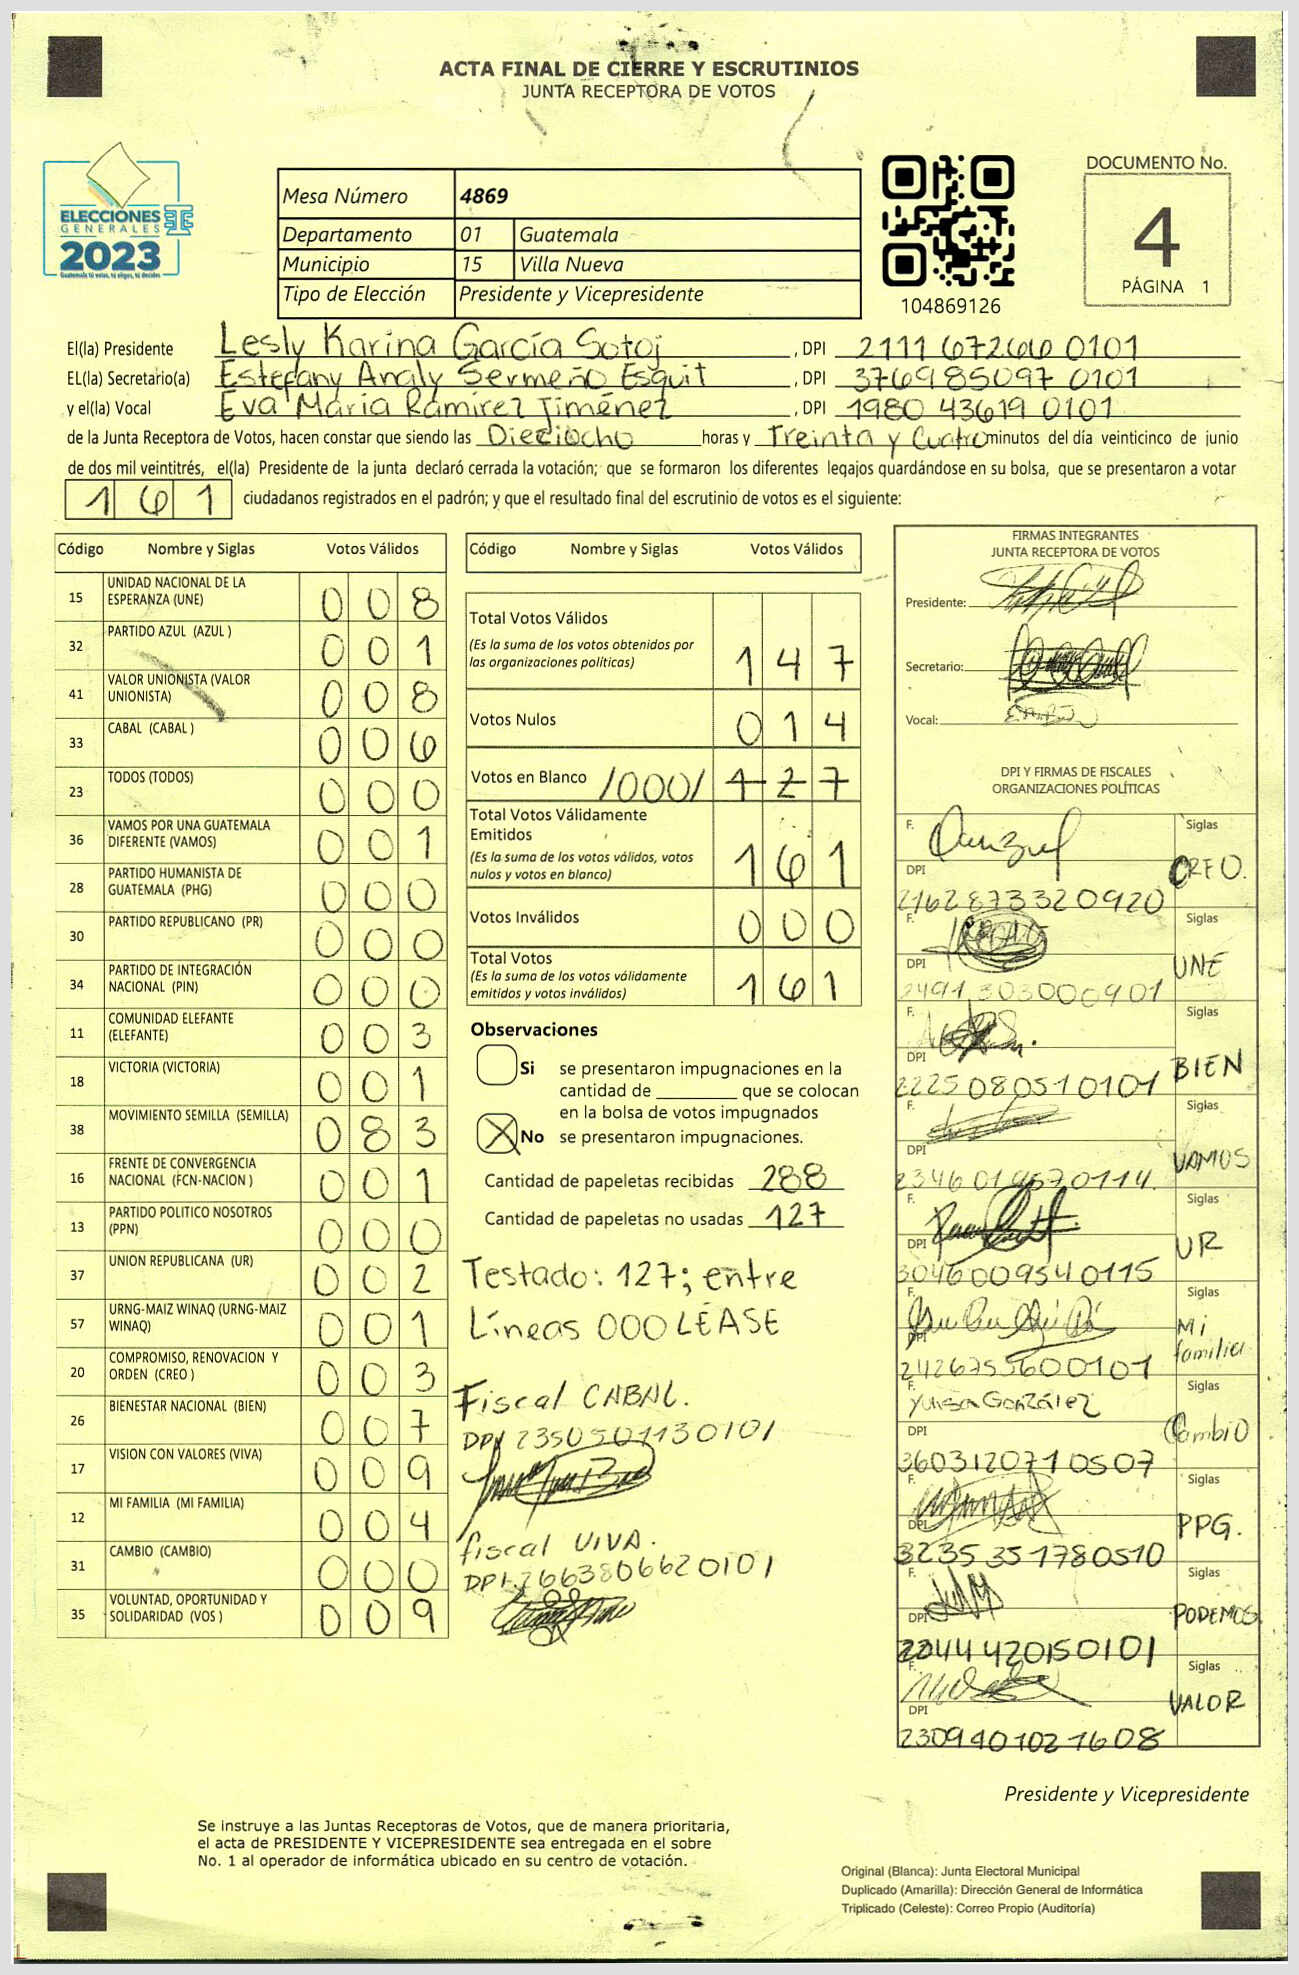 ACTA FINAL DE CIERRE Y ESCRUTINIOS
JUNTA RECEPTORA DE VOTOS
ELECCIONES
GENERALES
2023
Mesa Número 4869
Departamento 01 Guatemala
Municipio 15 Villa Nueva
Tipo de Elección Presidente y Vicepresidente
104869126
DOCUMENTO No.
4
PÁGINA 1
El(la) Presidente Lesly Karina García Sotoj, DPI 2111 67266 0101
EL(la) Secretario(a) Estefany Analy Sermeño Esquit, DPI 376985097 0101
y el(la) Vocal Eva María Ramírez Jiménez, DPI 1980 43619 0101
de la Junta Receptora de Votos, hacen constar que siendo las Dieciocho horas y Treinta y Cuatro minutos del día veinticinco de junio
de dos mil veintitrés, el(la) Presidente de la junta declaró cerrada la votación; que se formaron los diferentes legajos guardándose en su bolsa, que se presentaron a votar
161 ciudadanos registrados en el padrón; y que el resultado final del escrutinio de votos es el siguiente:
Código Nombre y Siglas Votos Válidos
15 UNIDAD NACIONAL DE LA ESPERANZA (UNE) 008
32 PARTIDO AZUL (AZUL ) 001
41 VALOR UNIONISTA (VALOR UNIONISTA) 008
33 CABAL (CABAL ) 006
23 TODOS (TODOS) 000
36 VAMOS POR UNA GUATEMALA DIFERENTE (VAMOS) 001
28 PARTIDO HUMANISTA DE GUATEMALA (PHG) 000
30 PARTIDO REPUBLICANO (PR) 000
34 PARTIDO DE INTEGRACIÓN NACIONAL (PIN) 000
11 COMUNIDAD ELEFANTE (ELEFANTE) 003
18 VICTORIA (VICTORIA) 001
38 MOVIMIENTO SEMILLA (SEMILLA) 083
16 FRENTE DE CONVERGENCIA NACIONAL (FCN-NACION ) 001
13 PARTIDO POLITICO NOSOTROS (PPN) 000
37 UNION REPUBLICANA (UR) 002
57 URNG-MAIZ WINAQ (URNG-MAIZ WINAQ) 001
20 COMPROMISO, RENOVACION Y ORDEN (CREO ) 003
26 BIENESTAR NACIONAL (BIEN) 007
17 VISION CON VALORES (VIVA) 009
12 MI FAMILIA (MI FAMILIA) 004
31 CAMBIO (CAMBIO) 000
35 VOLUNTAD, OPORTUNIDAD Y SOLIDARIDAD (VOS ) 009
Código Nombre y Siglas Votos Válidos
Total Votos Válidos
(Es la suma de los votos obtenidos por
las organizaciones políticas) 147
Votos Nulos 014
Votos en Blanco /000/ 127
Total Votos Válidamente
Emitidos
(Es la suma de los votos válidos, votos
nulos y votos en blanco) 161
Votos Inválidos 000
Total Votos
(Es la suma de los votos válidamente
emitidos y votos inválidos) 161
Observaciones
Si se presentaron impugnaciones en la
cantidad de ________ que se colocan
en la bolsa de votos impugnados
No se presentaron impugnaciones.
Cantidad de papeletas recibidas 288
Cantidad de papeletas no usadas 127
Testado: 127; entre
Líneas 000 LÉASE
Fiscal CABAL.
DPI 2350501130101
fiscal VIVA.
DPI. 2663806620101
FIRMAS INTEGRANTES
JUNTA RECEPTORA DE VOTOS
Presidente:
Secretario:
Vocal:
DPI Y FIRMAS DE FISCALES
ORGANIZACIONES POLÍTICAS
F. Siglas
DPI CREO.
2162873320920
F. Siglas
DPI UNE
2491303000901
F. Siglas
DPI BIEN
2225080510101
F. Siglas
DPI VAMOS
F. Siglas
DPI UR
3046009540115
F. Siglas
DPI Mi familia
2426755600101
F. Yulisa González Siglas
DPI Cambio
3603120710507
F. Siglas
DPI PPG.
3235351780510
F. Siglas
DPI PODEMOS
2244420150101
F. Siglas
DPI VALOR
2309401021608
Presidente y Vicepresidente
Se instruye a las Juntas Receptoras de Votos, que de manera prioritaria,
el acta de PRESIDENTE Y VICEPRESIDENTE sea entregada en el sobre
No. 1 al operador de informática ubicado en su centro de votación.
Original (Blanca): Junta Electoral Municipal
Duplicado (Amarilla): Dirección General de Informática
Triplicado (Celeste): Correo Propio (Auditoría)